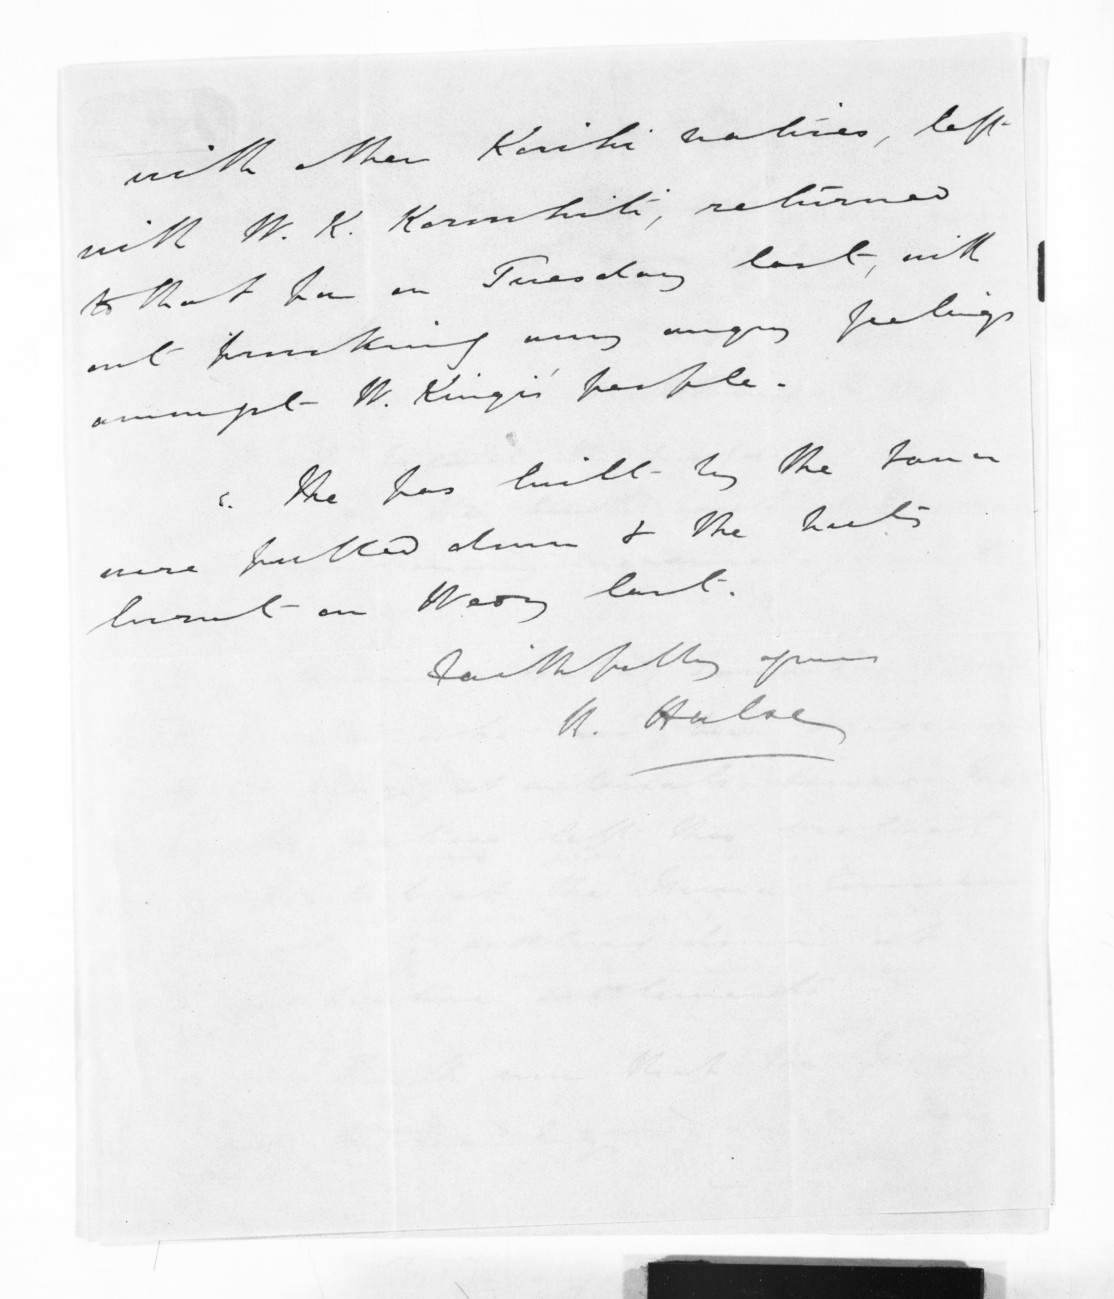 with other Karihi natives, left
with W. K. Korowhiti, returned
to that pa on Tuesday last, with
out provoking any angry feelings
amongst W. Kingi's people.
5. The pas built by the town
were pulled down & the huts
burnt on Wedy last.
Faithfully yours
H. Halse